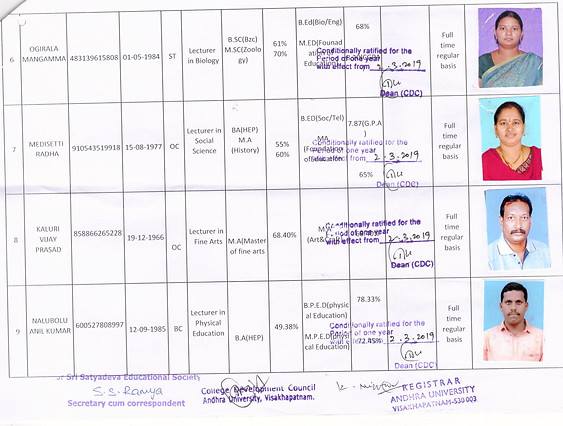 6 OGIRALA MANGAMMA 483139615808 01-05-1984 ST Lecturer in Biology B.SC(Bzc) M.SC(Zoology) 61% 70% B.Ed(Bio/Eng) M.ED(Founadation of Education) 68% Full time regular basis
Conditionally ratified for the
Period of one year
with effect from 2.3.2019
Dean (CDC)
7 MEDISETTI RADHA 910543519918 15-08-1977 OC Lecturer in Social Science BA(HEP) M.A (History) 55% 60% B.ED(Soc/Tel) MA (Foundation of education 7.87(G.P.A) 65% Full time regular basis
Conditionally ratified for the
Period of one year
with effect from 2.3.2019
Dean (CDC)
8 KALURI VIJAY PRASAD 858866265228 19-12-1966 OC Lecturer in Fine Arts M.A(Master of fine arts 68.40% Full time regular basis
Conditionally ratified for the
Period of one year
with effect from 2.3.2019
Dean (CDC)
9 NALUBOLU ANIL KUMAR 600527808997 12-09-1985 BC Lecturer in Physical Education B.A(HEP) 49.38% B.P.E.D(physical Education) M.P.E.D(physical Education) 78.33% 72.45% Full time regular basis
Conditionally ratified for the
Period of one year
with effect from 2.3.2019
Dean (CDC)
Sri Satyadeva Educational Society
S.S. Ramya
Secretary cum correspondent
College Development Council
Andhra University, Visakhapatnam.
REGISTRAR
ANDHRA UNIVERSITY
VISAKHAPATNAM-530 003